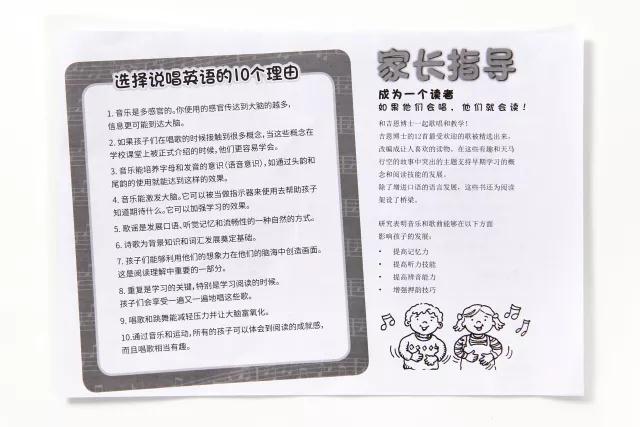 选择说唱英语的10个理由
1. 音乐是多感官的。你使用的感官传达到大脑的越多，
信息更可能到达大脑。
2. 如果孩子们在唱歌的时候接触到很多概念，当这些概念在
学校课堂上被正式介绍的时候，他们更容易学会。
3. 音乐能培养字母和发音的意识（语音意识），如通过头韵和
尾韵的使用就能达到这样的效果。
4. 音乐能激发大脑。它可以被当做指示器来使用去帮助孩子
知道期待什么。它可以加强学习的效果。
5. 歌谣是发展口语、听觉记忆和流畅性的一种自然的方式。
6. 诗歌为背景知识和词汇发展奠定基础。
7. 孩子们能够利用他们的想象力在他们的脑海中创造画面。
这是阅读理解中重要的一部分。
8. 重复是学习的关键，特别是学习阅读的时候。
孩子们会享受一遍又一遍地唱这些歌。
9. 唱歌和跳舞能减轻压力并让大脑富氧化。
10.通过音乐和运动，所有的孩子可以体会到阅读的成就感，
而且唱歌相当有趣。
家长指导
成为一个读者
如果他们会唱，他们就会读！
和吉恩博士一起歌唱和教学！
吉恩博士的12首最受欢迎的歌被精选出来，
改编成让人喜欢的读物。在这些有趣和天马
行空的故事中突出的主题支持早期学习的概
念和阅读技能的发展。
除了增进口语的语言发展，这些书还为阅读
架设了桥梁。
研究表明音乐和歌曲能够在以下方面
影响孩子的发展：
• 提高记忆力
• 提高听力技能
• 提高辨音能力
• 增强押韵技巧